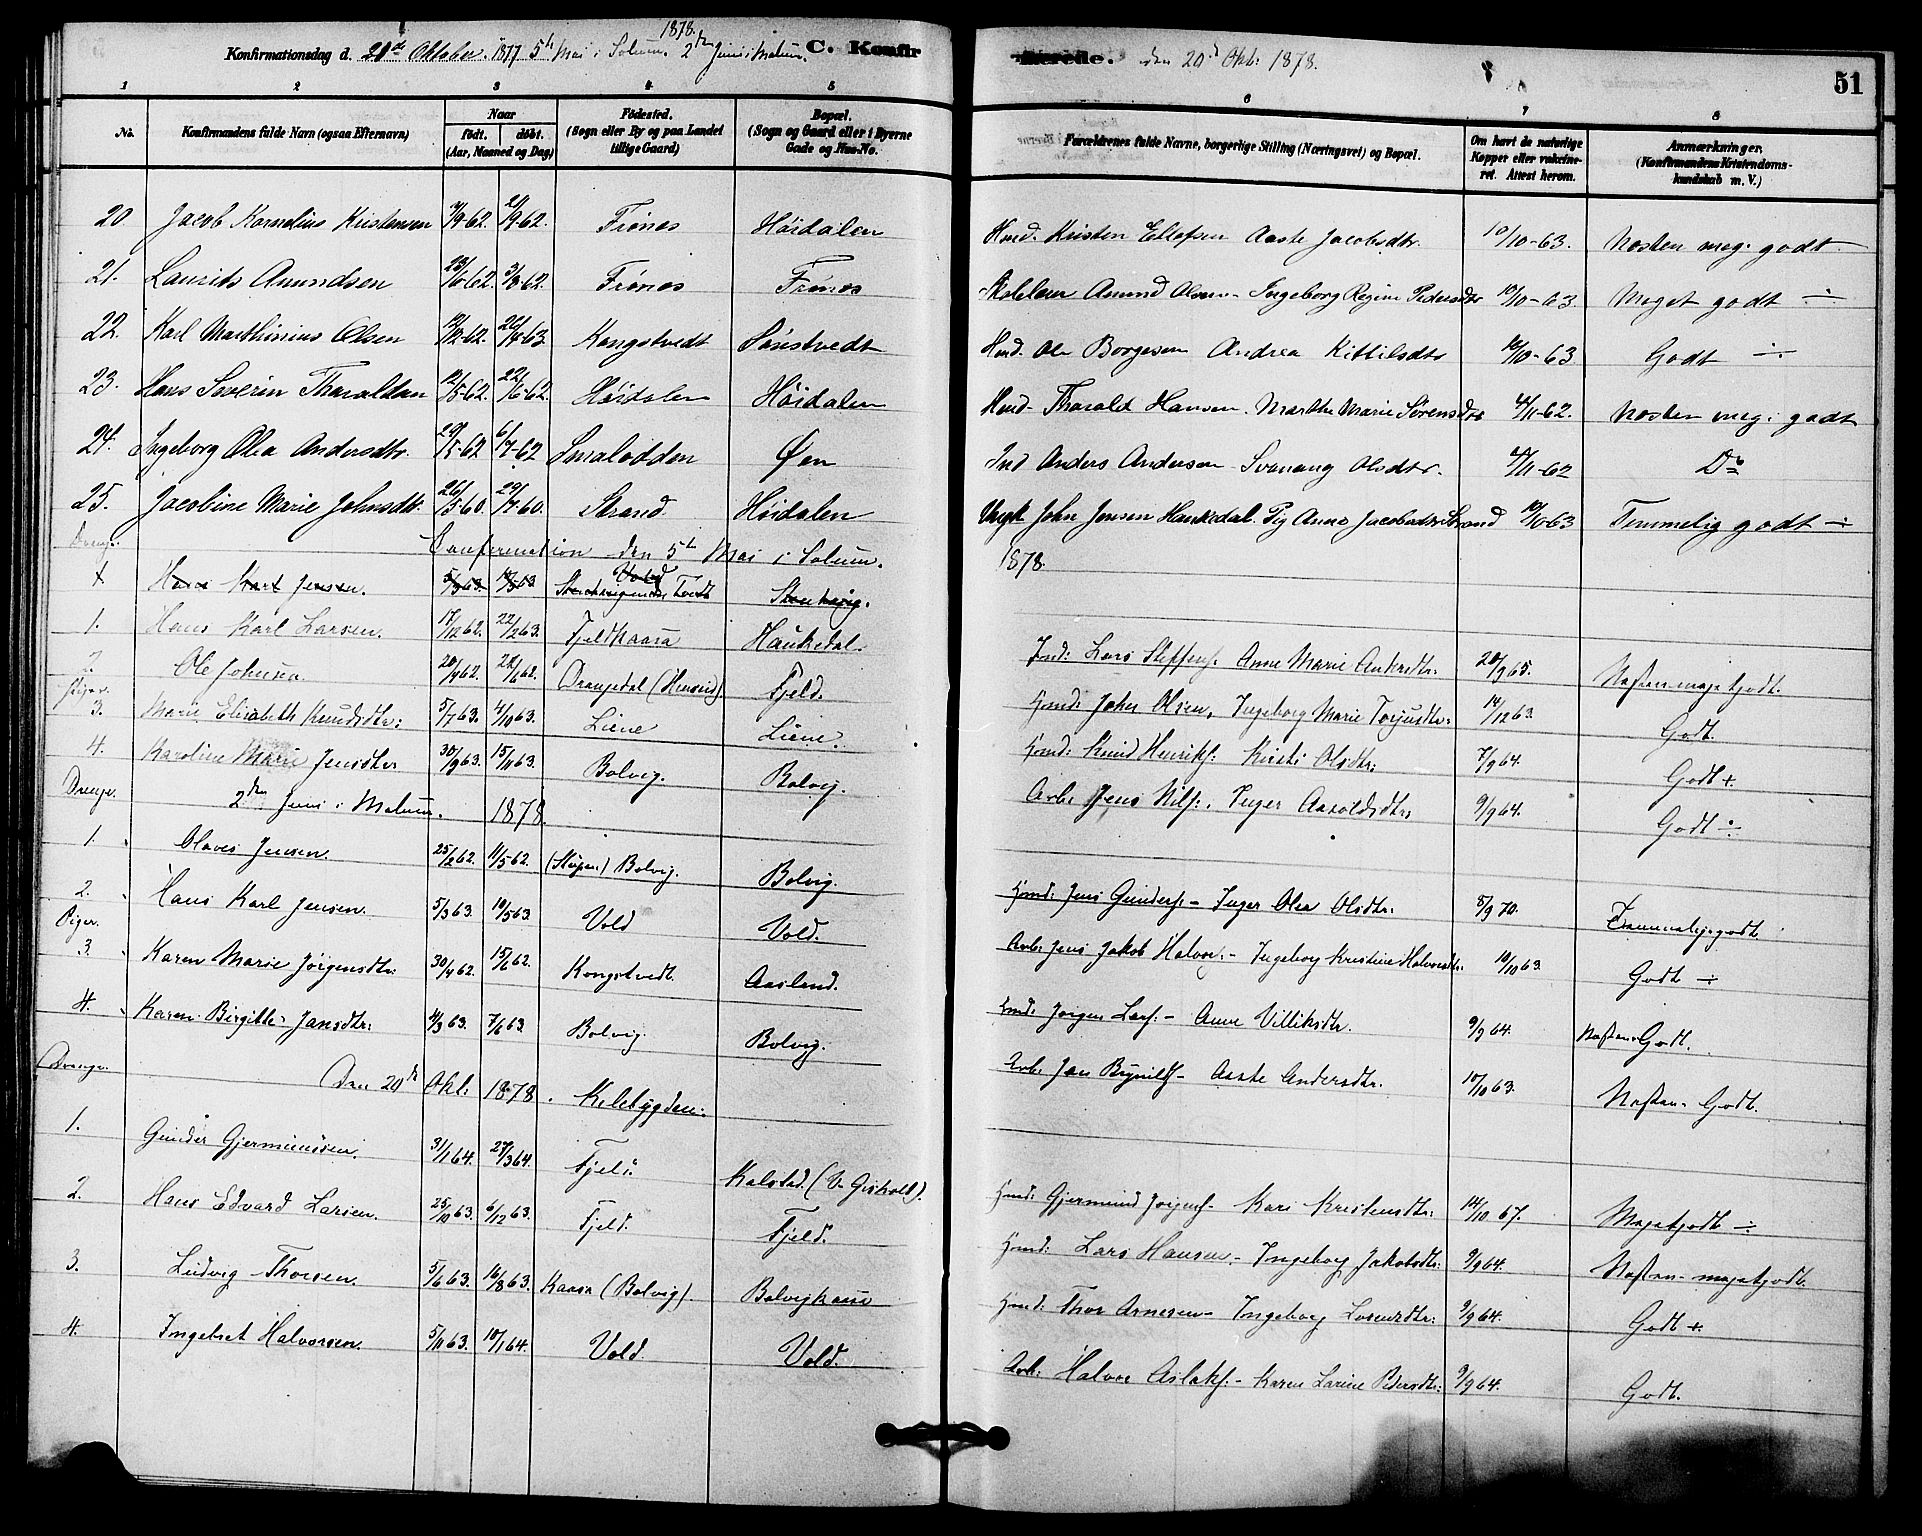 1878.
Konfirmationsdag d. 21de Oktober. 1877 5te Mai i Solum. 2den Juni i Melum. C. Konfir
merede. den 20de Oktb: 1878. 51
1 2 3 4 5 6 7 8
No. Konfirmandens fulde Navn (ogsaa Efternavn) Naar født. døbt. (Aar, Maaned og Dag) Fødested. (Sogn eller By og paa Landet tillige Gaard) Bopæl. (Sogn og Gaard eller i Byerne Gade og Hus-No. Forældrenes fulde Navne, borgerlige Stilling (Næringsvei) og Bopæl. Om havt de naturlige Kopper eller vakcineret. Attest herom. Anmærkninger. (Konfirmandens Kristendomskundskab m. V.)
20 Jacob Kornelius Kristensen /9-62. 21/9-62. Frönes Höidalen Hmd. Kristen Ellefsen Aaste Jacobsdtr. 10/10-63. Næsten meg. godt
21. Laurits Amundsen 23/6-62. 3/8-62. Frönes Frönes Skolelærer Amund Olsen - Ingeborg Regine Pedersdtr 10/10-63 Meget godt ÷
22. Karl Marthinius Olsen 12/12-62. 26/4-63 Kongstvedt Sönstvedt Hmd. Ole Borgesen Andrea Kittilsdtr 10/10-63 Godt ÷
23. Hans Severin Tharaldsen 12/5-62. 22/6-62. Höidalen Höidalen Hmd. Tharald Hansen. Marthe Marie Sörensdtr 4/11-62. Næsten meg: godt
24. Ingeborg Olea Andersdtr. 29/5-62 6/7-62 Smalodden Øen Ind Anders Andersen Svanaug Olsdtr. 4/11-62 Do
25. Jacobine Marie Johnsdtr. 26/5-60. 29/7-60. Strand. Höidalen Ungk John Jensen Haukedal. Pig Anne Jacobsdtr Strand 10/10-63 Temmelig godt ÷
Drenge. Confirmation den 5te Mai i Solum. 1878.
1 Hans Karl Jensen. 5/3 63. 10/5 63 Vold Stenhaugen
1. Hans Karl Larsen. 17/12 62. 22/2 63. Fjeldkaasa Haukedal. Ind: Lars Steffens. Anne Marie Ankedtr. 20/9 65. Næsten megetgodt.
2. Ole Johnsen 20/4 62. 22/6 62. Drangedal (Henseid) Fjeld. Hmd: John Olsen. Ingeborg Marie Torjusdtr: 14/12 63. Godt.
Piger.
3. Marie Elisabeth Knudsdtr: 5/7 63. 4/10 63. Liene Liene. Hmd: Knud Henriks. Kirsti Olsdtr: 7/9 64. Godt +
4. Karoline Marie Jensdtr 30/9 63. 15/11 63. Bolvig. Bolvig. Arb. Jens Nils:. Inger Aaroldsdtr: 9/9 64. Godt ÷
Drenge. 2den Juni i Melum. 1878.
1. Olaves Jensen. 25/2 62. 11/5 62. (Skien) Bolvig. Bolvig. Hmd: Jens Gunders. - Inger Olea Olsdtr: 8/9 70. Temmeligodt.
2. Hans Karl Jensen. 5/3 63. 10/5 63. Vold Vold. Arb. Jens Jakob Halvors. - Ingeborg Kristine Halvorsdtr: 10/10 63. Godt ÷
Piger.
3. Karen Marie Jörgensdtr: 30/4 62. 15/6 62. Kongstvedt Aasland. Ind: Jörgen Lars: - Anne Villiksdtr. 9/9 64. Næsten Godt.
4. Karen Birgitte Jansdtr: 4/3 63. 7/6 63. Bolvig. Bolvig. Arb. Jan Brynilds - Aaste Andersdtr. 10/10 63. Næsten Godt.
Drenge. Den 20de Okt: 1878. Kilebygden:
1. Gunder Gjermundsen. 31/1 64. 27/3 64. Fjeld. Kalstad. (V. Gisholt). Hmd: Gjermund Jörgens - Kari Kristensdtr: 14/10 67. Megetgodt ÷
2. Hans Edvard Larsen. 25/10 63. 6/12 63. Fjeld. Fjeld. Hmd: Lars Hansen. - Ingeborg Jakobsdtr: 9/9 64. Næsten megetgodt.
3. Ludvig Thorsen. 5/6 63. 16/8 63. Kaasa (Bolvig). Bolvigkaasa Hmd: Thor Arnesen - Ingeborg 9/9 64. Godt +
4. Ingebret Halvorsen. 5/11 63. 10/1 64. Vold. Vold. Arb: Halvor Aslaks. - Karen Larine 9/9 64. Godt.